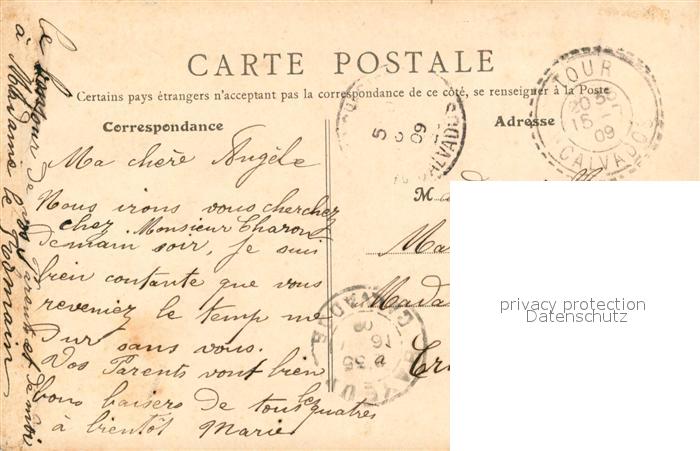 CARTE POSTALE
Certains pays étrangers n'acceptant pas la correspondance de ce côté, se renseigner à la Poste
Correspondance
Adresse
Ma chère Angèle
Nous irons vous cherchez
chez Monsieur Charon
demain soir, je suis
bien contante que vous
reveniez le temp me
Dur sans vous.
Vos Parents vont bien
bons baisers de tous les quatres
à bientôt Marie
le bonjour de vos Parents et de moi
à Madame le Germain
M
Ma
Mada
TOUR
20 50
15
09
CALVADOS
5
09
CALVADOS
16
09
privacy protection
Datenschutz